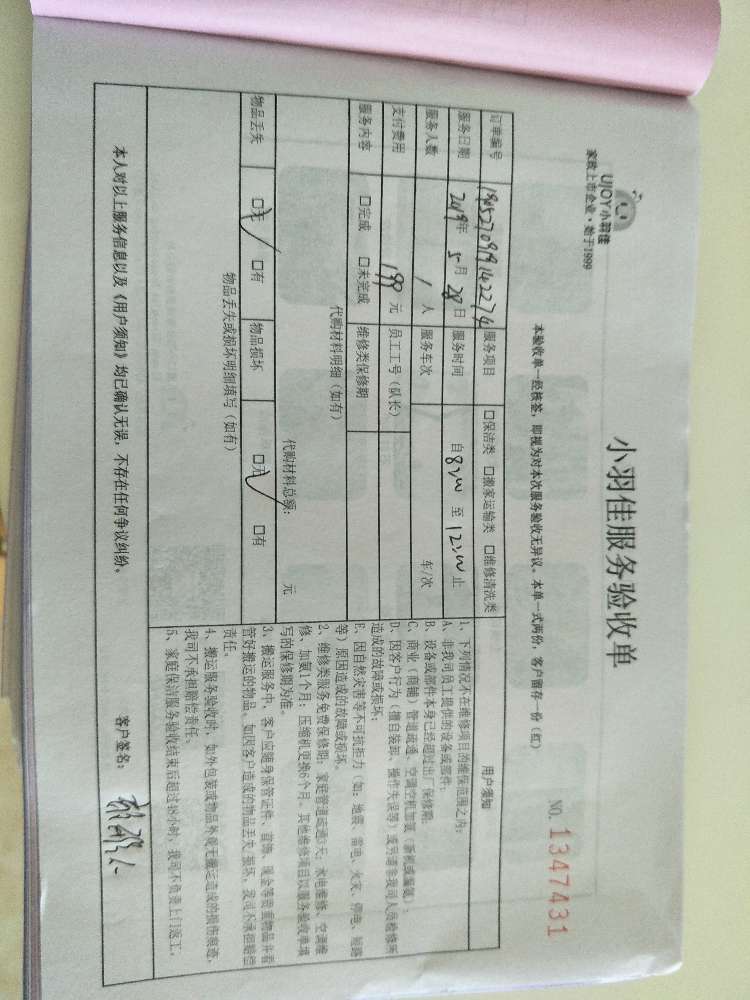 UJOY小羽佳
家政上市企业·始于1999
小羽佳服务验收单
NO. 1347431
本验收单一经核签，即视为对本次服务验收无异议。本单一式两份，客户留存一份（红）
订单编号 服务项目 □保洁类 □搬家运输类 □维修清洗类
服务日期 2019年5月28日 服务时间 自8:00至12:00止
服务人数 1人 服务车次 车/次
支付费用 199元 员工工号（队长）
服务内容 □完成 □未完成 维修类保修期
代购材料明细（如有）
代购材料总额： 元
物品丢失 □无 □有 物品损坏 □无 □有
物品丢失或损坏明细填写（如有）
用户须知
1、下列情况不在维修项目的维保范围之内：
A、非我司员工提供的设备或部件；
B、设备或部件本身已经超过出厂保修期；
C、商业（商铺）管道疏通、空调空机加氨（新机或漏氨）；
D、因客户行为（擅自装卸、操作失误等）或另请非我司人员检修所
造成的故障或损坏；
E、因自然灾害等不可抗拒力（如：地震、雷电、火灾、停电、短路
等）原因造成的故障或损坏。
2、维修类服务免费保修期：家庭管道疏通3天；水电维修、空调维
修、加氨1个月；压缩机更换6个月，其他维修项目以服务验收单填
写的保修期为准。
3、搬运服务中，客户应随身保管证件、首饰、现金等贵重物品并看
管好搬运的物品。如因客户造成的物品丢失、损坏，我司不承担赔偿
责任。
4、搬运服务验收时，如外包装或物品外观无搬运造成的损伤痕迹，
我司不承担赔偿责任。
5、家庭保洁服务验收结束后超过48小时，我司不负责上门返工。
本人对以上服务信息以及《用户须知》均已确认无误，不存在任何争议纠纷。
客户签名：